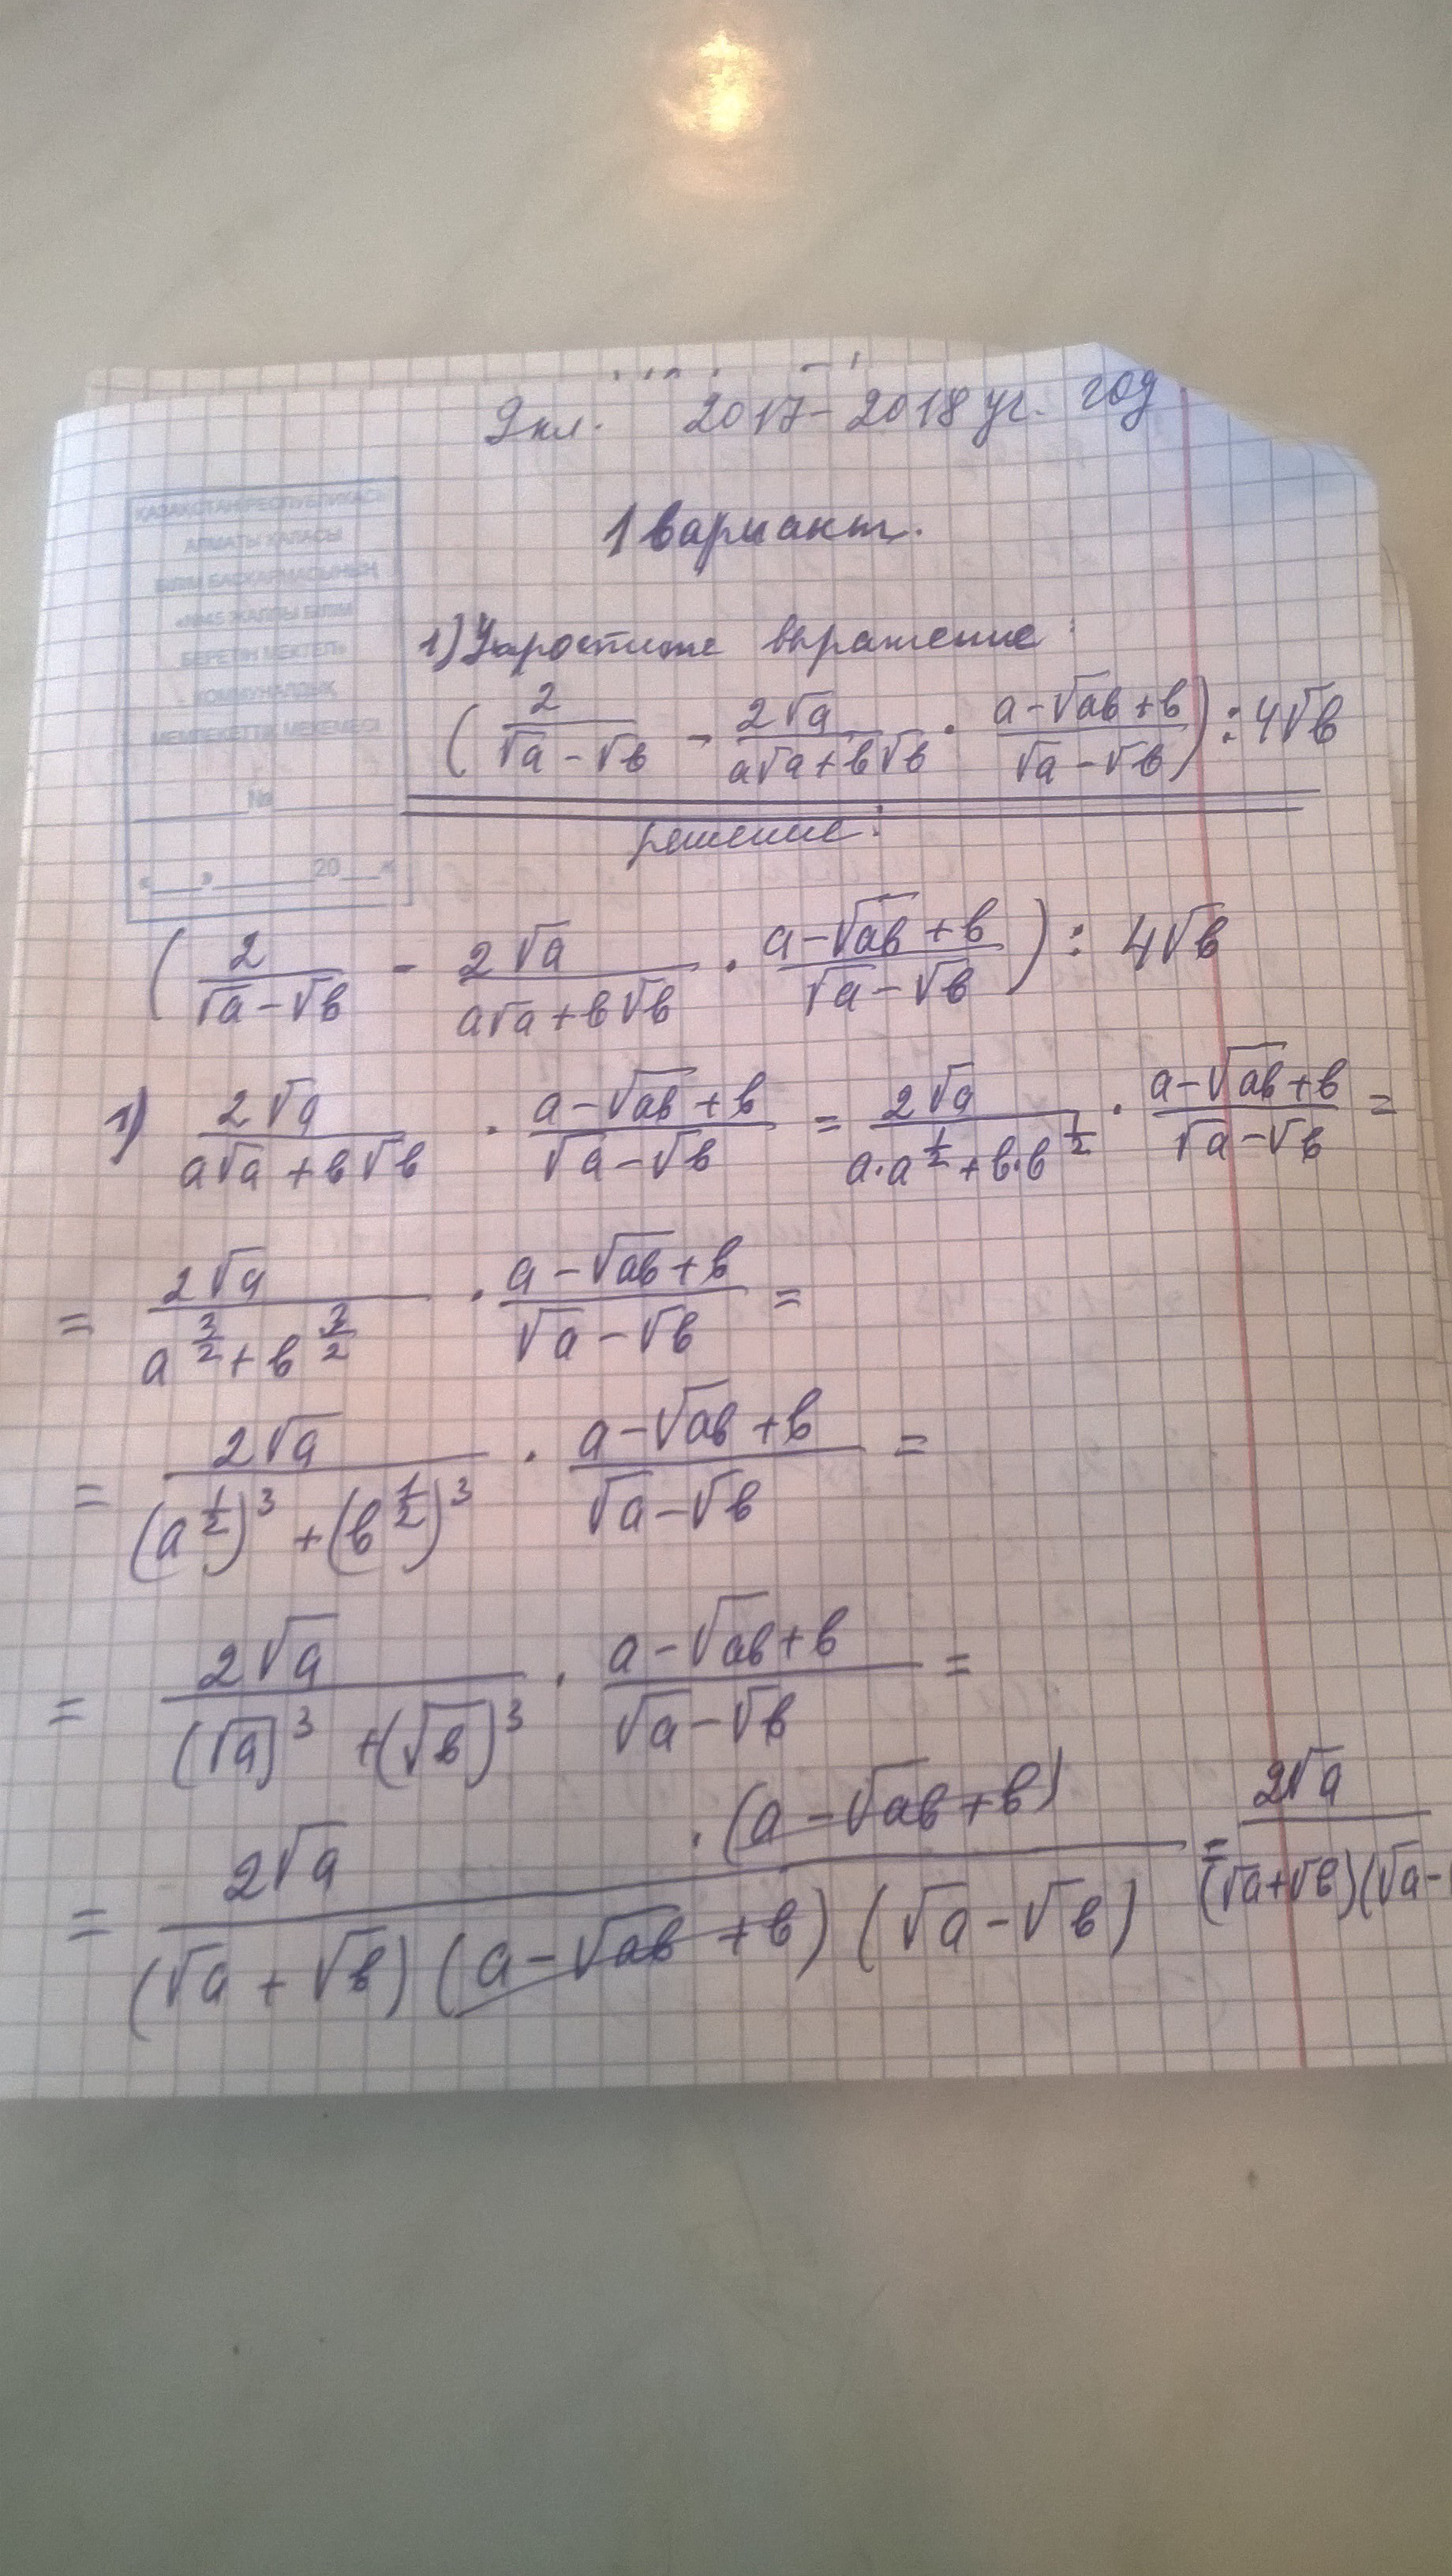 9 кл. 2017-2018 уг. год
ҚАЗАҚСТАН РЕСПУБЛИКАСЫ
АЛМАТЫ ҚАЛАСЫ
БІЛІМ БАСҚАРМАСЫНЫҢ
ЖАЛПЫ БІЛІМ
БЕРЕТІН МЕКТЕП»
КОММУНАЛДЫҚ
МЕМЛЕКЕТТІК МЕКЕМЕСІ
№
«___»________20___
1 вариант.
1) Упростите выражение:
(2/(√a-√b) - 2√a/(a√a+b√b) · (a-√ab+b)/(√a-√b)) : 4√b
решение:
(2/(√a-√b) - 2√a/(a√a+b√b) · (a-√ab+b)/(√a-√b)) : 4√b
1) 2√a/(a√a+b√b) · (a-√ab+b)/(√a-√b) = 2√a/(a·a^(1/2)+b·b^(1/2)) · (a-√ab+b)/(√a-√b) =
= 2√a/(a^(3/2)+b^(3/2)) · (a-√ab+b)/(√a-√b) =
= 2√a/((a^(1/2))^3+(b^(1/2))^3) · (a-√ab+b)/(√a-√b) =
= 2√a/((√a)^3+(√b)^3) · (a-√ab+b)/(√a-√b) =
= 2√a · (a-√ab+b)/((√a+√b)(a-√ab+b)(√a-√b)) = 2√a/((√a+√b)(√a-